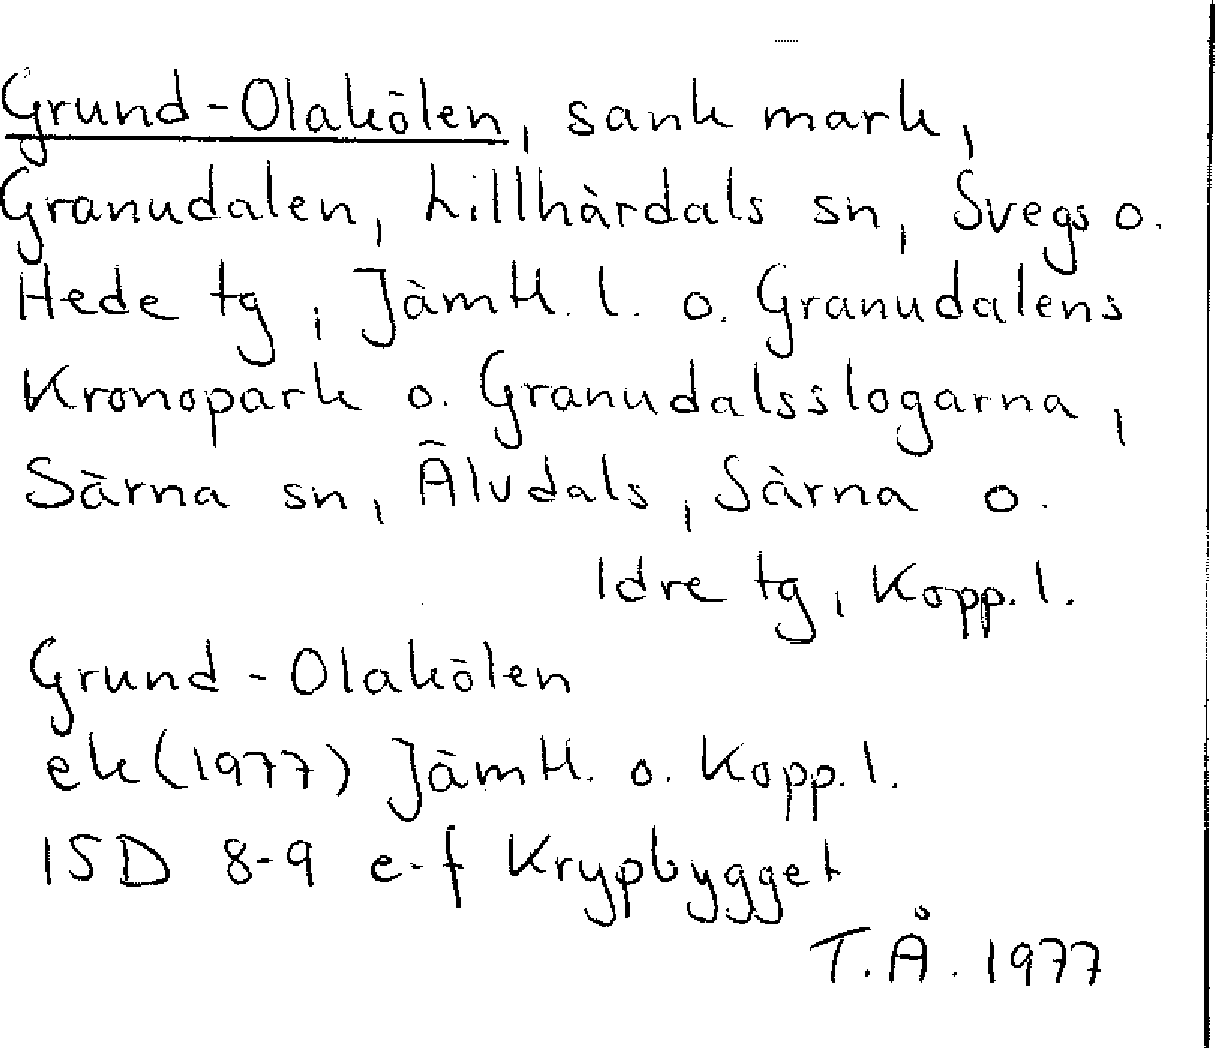 Grund-Olakölen, sank mark,
Granudalen, Lillhärdals sn, Svegs o.
Hede tg, Jämtl. l. o. Granudalens
Kronopark o. Granudalsslogarna,
Särna sn, Älvdals, Särna o.
Idre tg, Kopp. l.
Grund-Olakölen
ek (1977) Jämtl. o. Kopp. l.
15D 8-9 e-f Krypbygget
T.Å. 1977